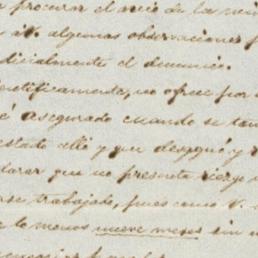 procurar el
á V. algunas observaciones
dicialmente el denuncio.
entificamente, no ofrece por
é asegurado cuando se
estado allí y que después y
rar que no presenta riesgo
rse trabajado, pues como V.
lo menos nueve meses sin